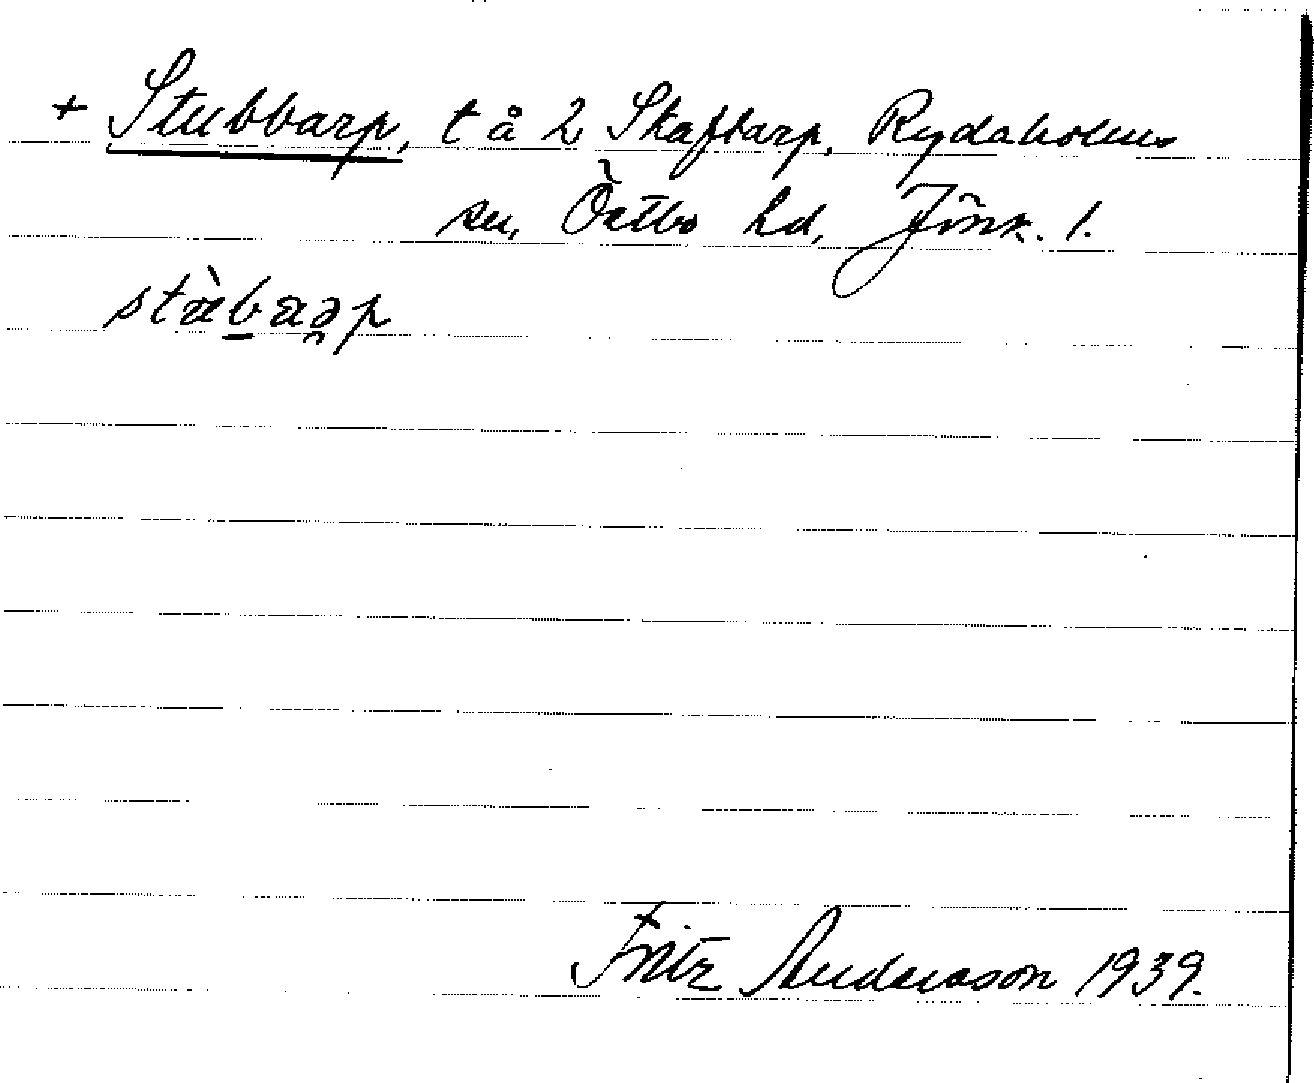 + Stubbarp, t å 2 Skaftarp, Rydaholms
sn, Östbo hd, Jönk. l.
Fritz Andersson 1939.